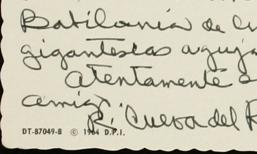 Babilonia de
gigantescas agujas
Atentamente
amigo
R. Cueva del R
DT-87049-B © 1964 D.P.I.